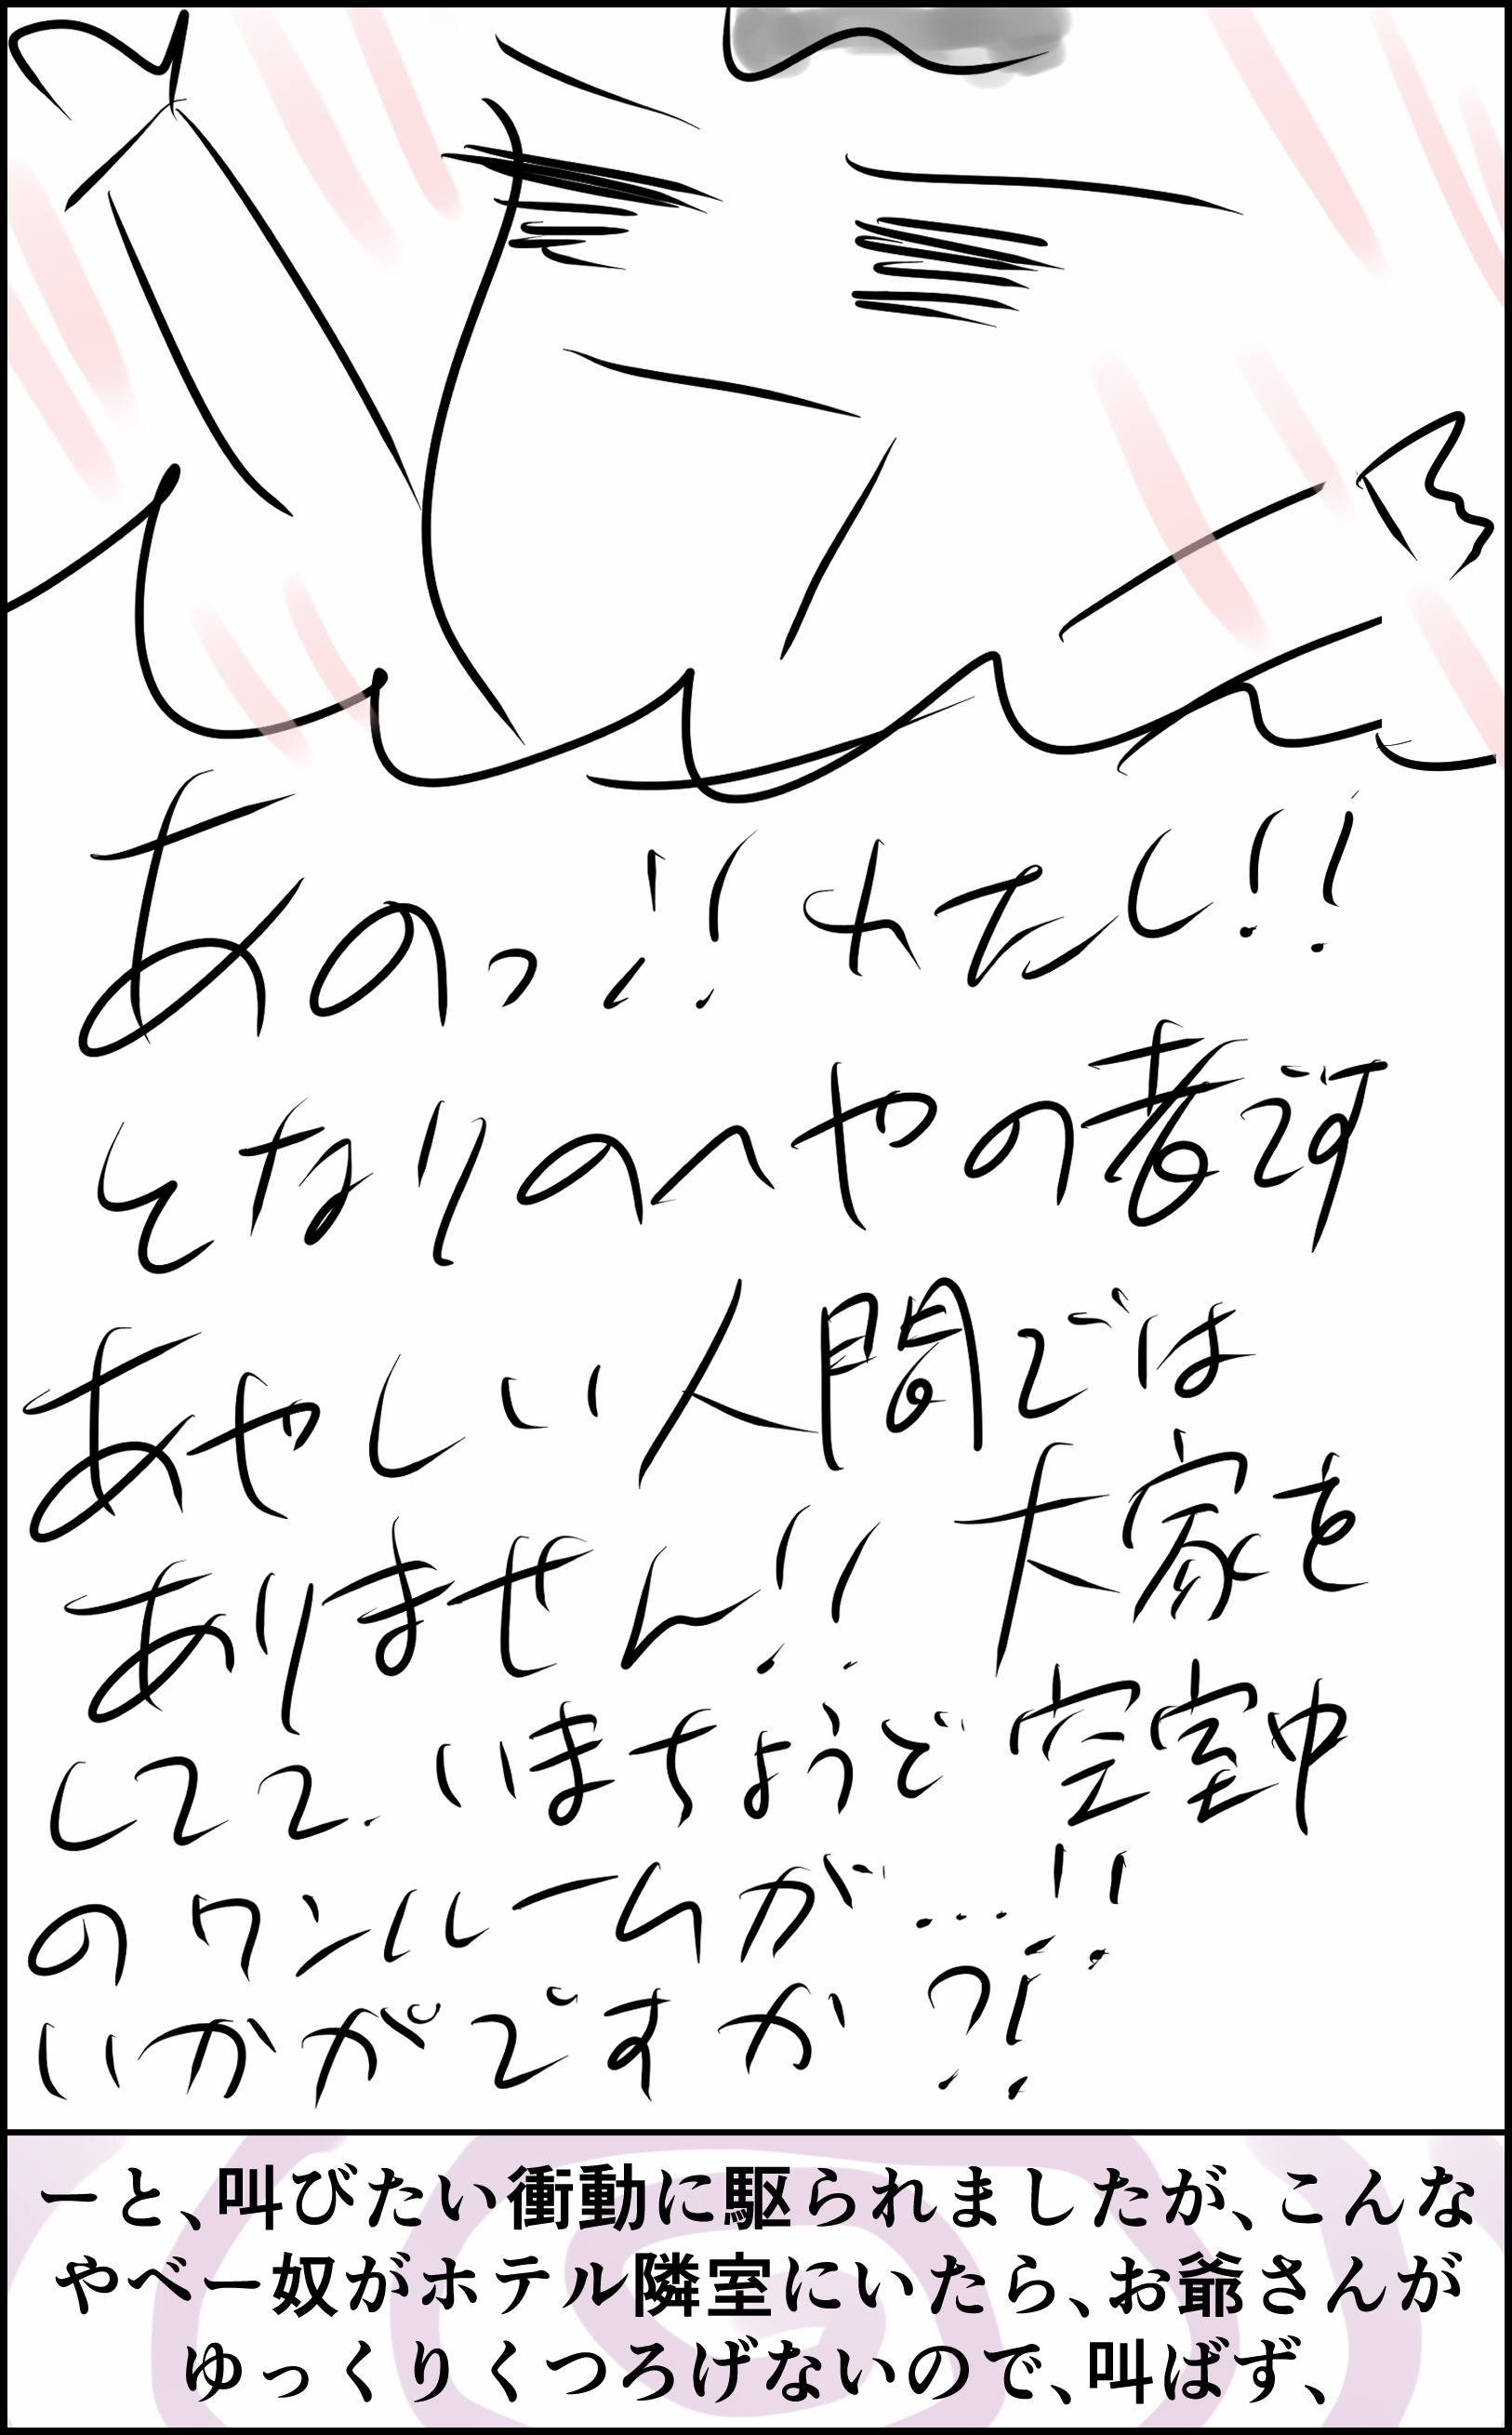 あのっ!! わたし!!
となりのへやの者です
あやしい人間では
ありません!! 大家を
してて. いまちょうど空室中
のワンルームが…!!
いかがですか ?!
ーと、叫びたい衝動に駆られましたが、こんな
やべー奴がホテル隣室にいたら、お爺さんが
ゆっくりくつろげないので、叫ばず、